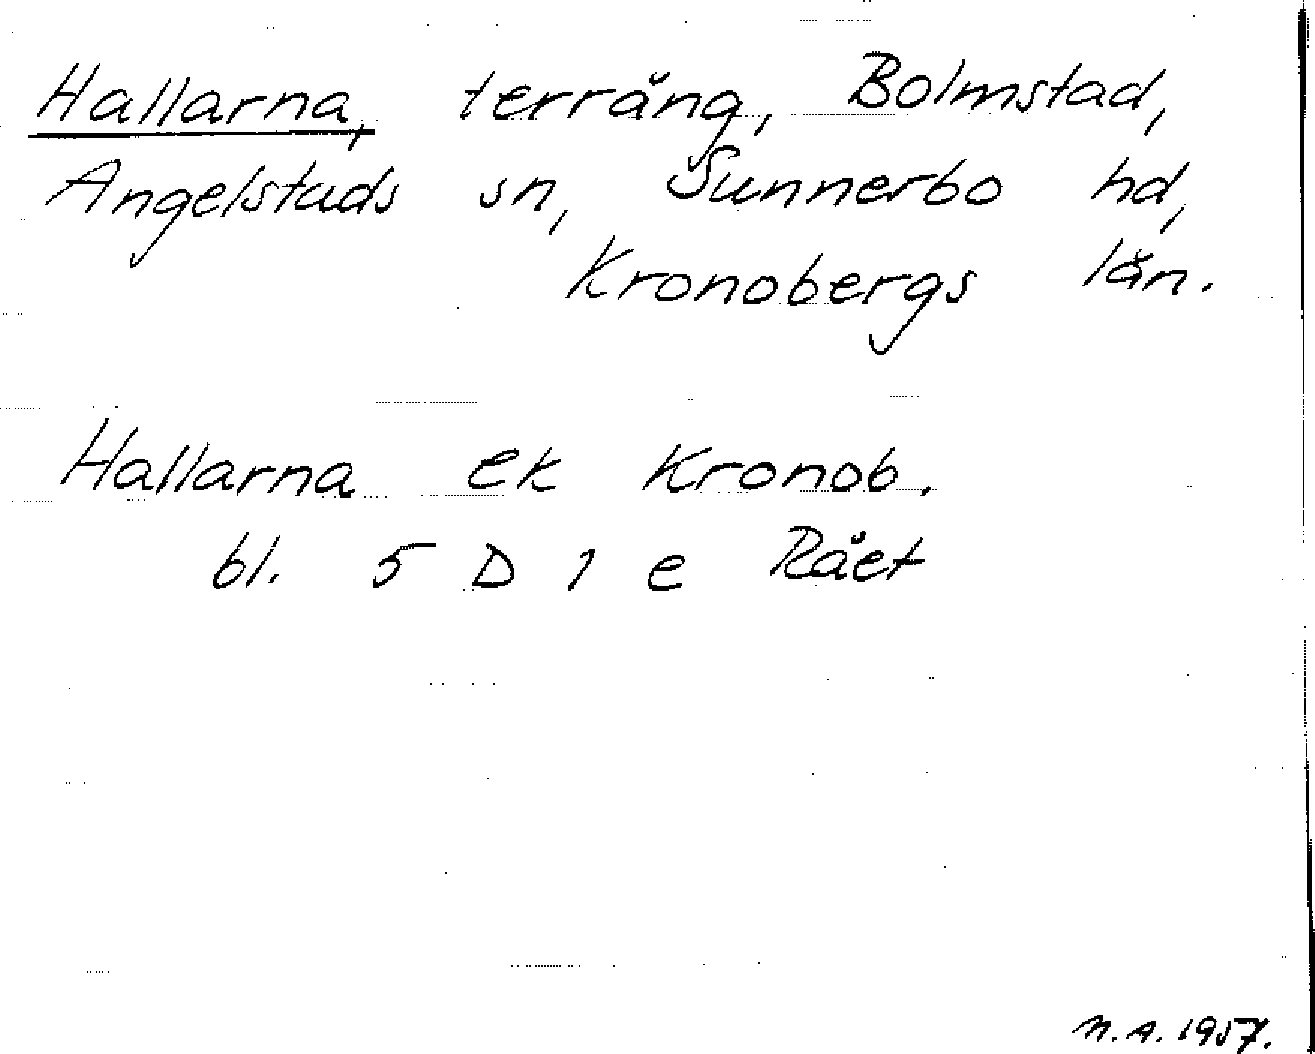 Hallarna, terräng, Bolmstad,
Angelstads sn, Sunnerbo hd,
Kronobergs län.
Hallarna ek Kronob.
bl. 5 D 1 e Rået
N.A. 1957.